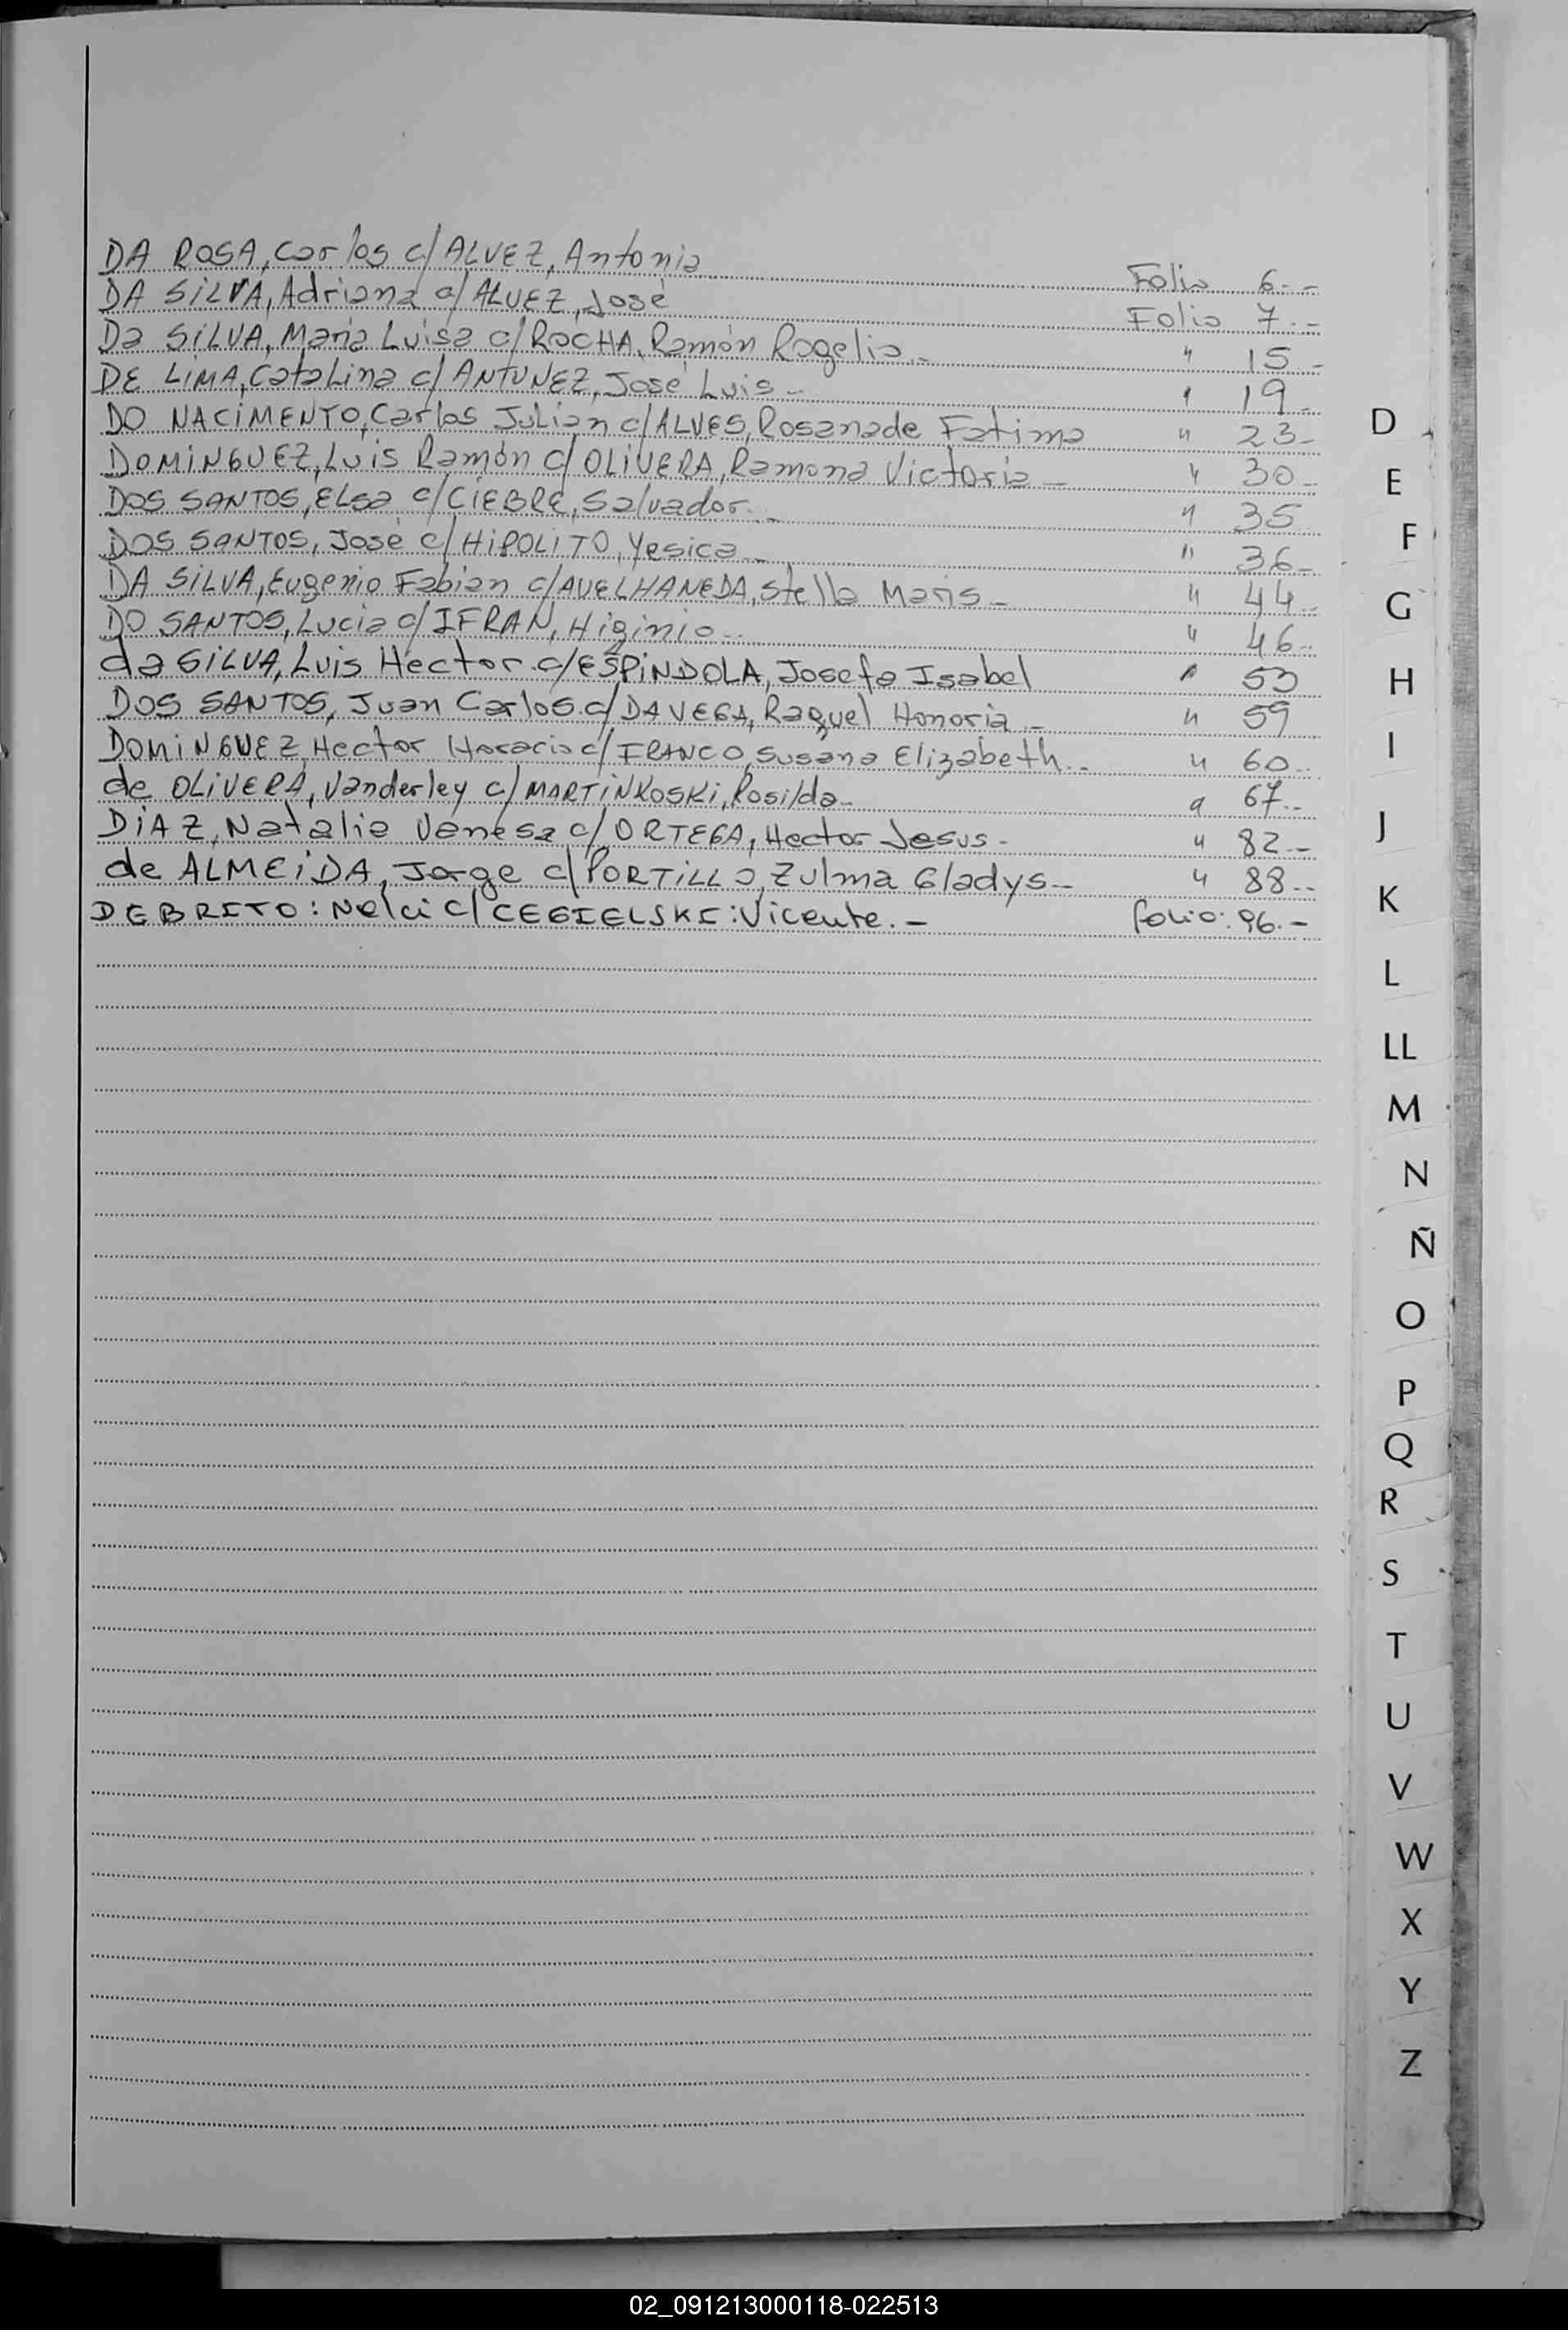 DA ROSA, Carlos c/ ALVEZ, Antonia Folio 6.-
DA SILVA, Adriana c/ ALVEZ, José Folio 7.-
Da SILVA, María Luisa c/ ROCHA, Ramón Rogelio.- " 15.-
DE LIMA, Catalina c/ ANTUNEZ, José Luis.- " 19.-
DO NACIMENTO, Carlos Julian c/ ALVES, Rosana de Fatima " 23.-
DOMINGUEZ, Luis Ramón c/ OLIVERA, Ramona Victoria.- " 30.-
DOS SANTOS, Elsa c/ CIEBRE, Salvador.- " 35
DOS SANTOS, José c/ HIPOLITO, Yesica.- " 36.-
DA SILVA, Eugenio Fabian c/ AVELHANEDA, Stella Maris.- " 44.-
DO SANTOS, Lucia c/ IFRAN, Higinio.- " 46.-
da SILVA, Luis Hector c/ ESPINDOLA, Josefa Isabel " 53
DOS SANTOS, Juan Carlos c/ DA VEGA, Raquel Honoria.- " 59
DOMINGUEZ, Hector Horacio c/ FRANCO, Susana Elizabeth.- " 60.-
de OLIVERA, Vanderley c/ MARTINKOSKI, Rosilda.- " 67.-
DIAZ, Natalia Vanesa c/ ORTEGA, Hector Jesus.- " 82.-
de ALMEIDA, Jorge c/ PORTILLO, Zulma Gladys.- " 88.-
DEBRITO: Nelci c/ CEGIELSKI: Vicente.- folio: 96.-
D
E
F
G
H
I
J
K
L
LL
M
N
Ñ
O
P
Q
R
S
T
U
V
W
X
Y
Z
02_091213000118-022513